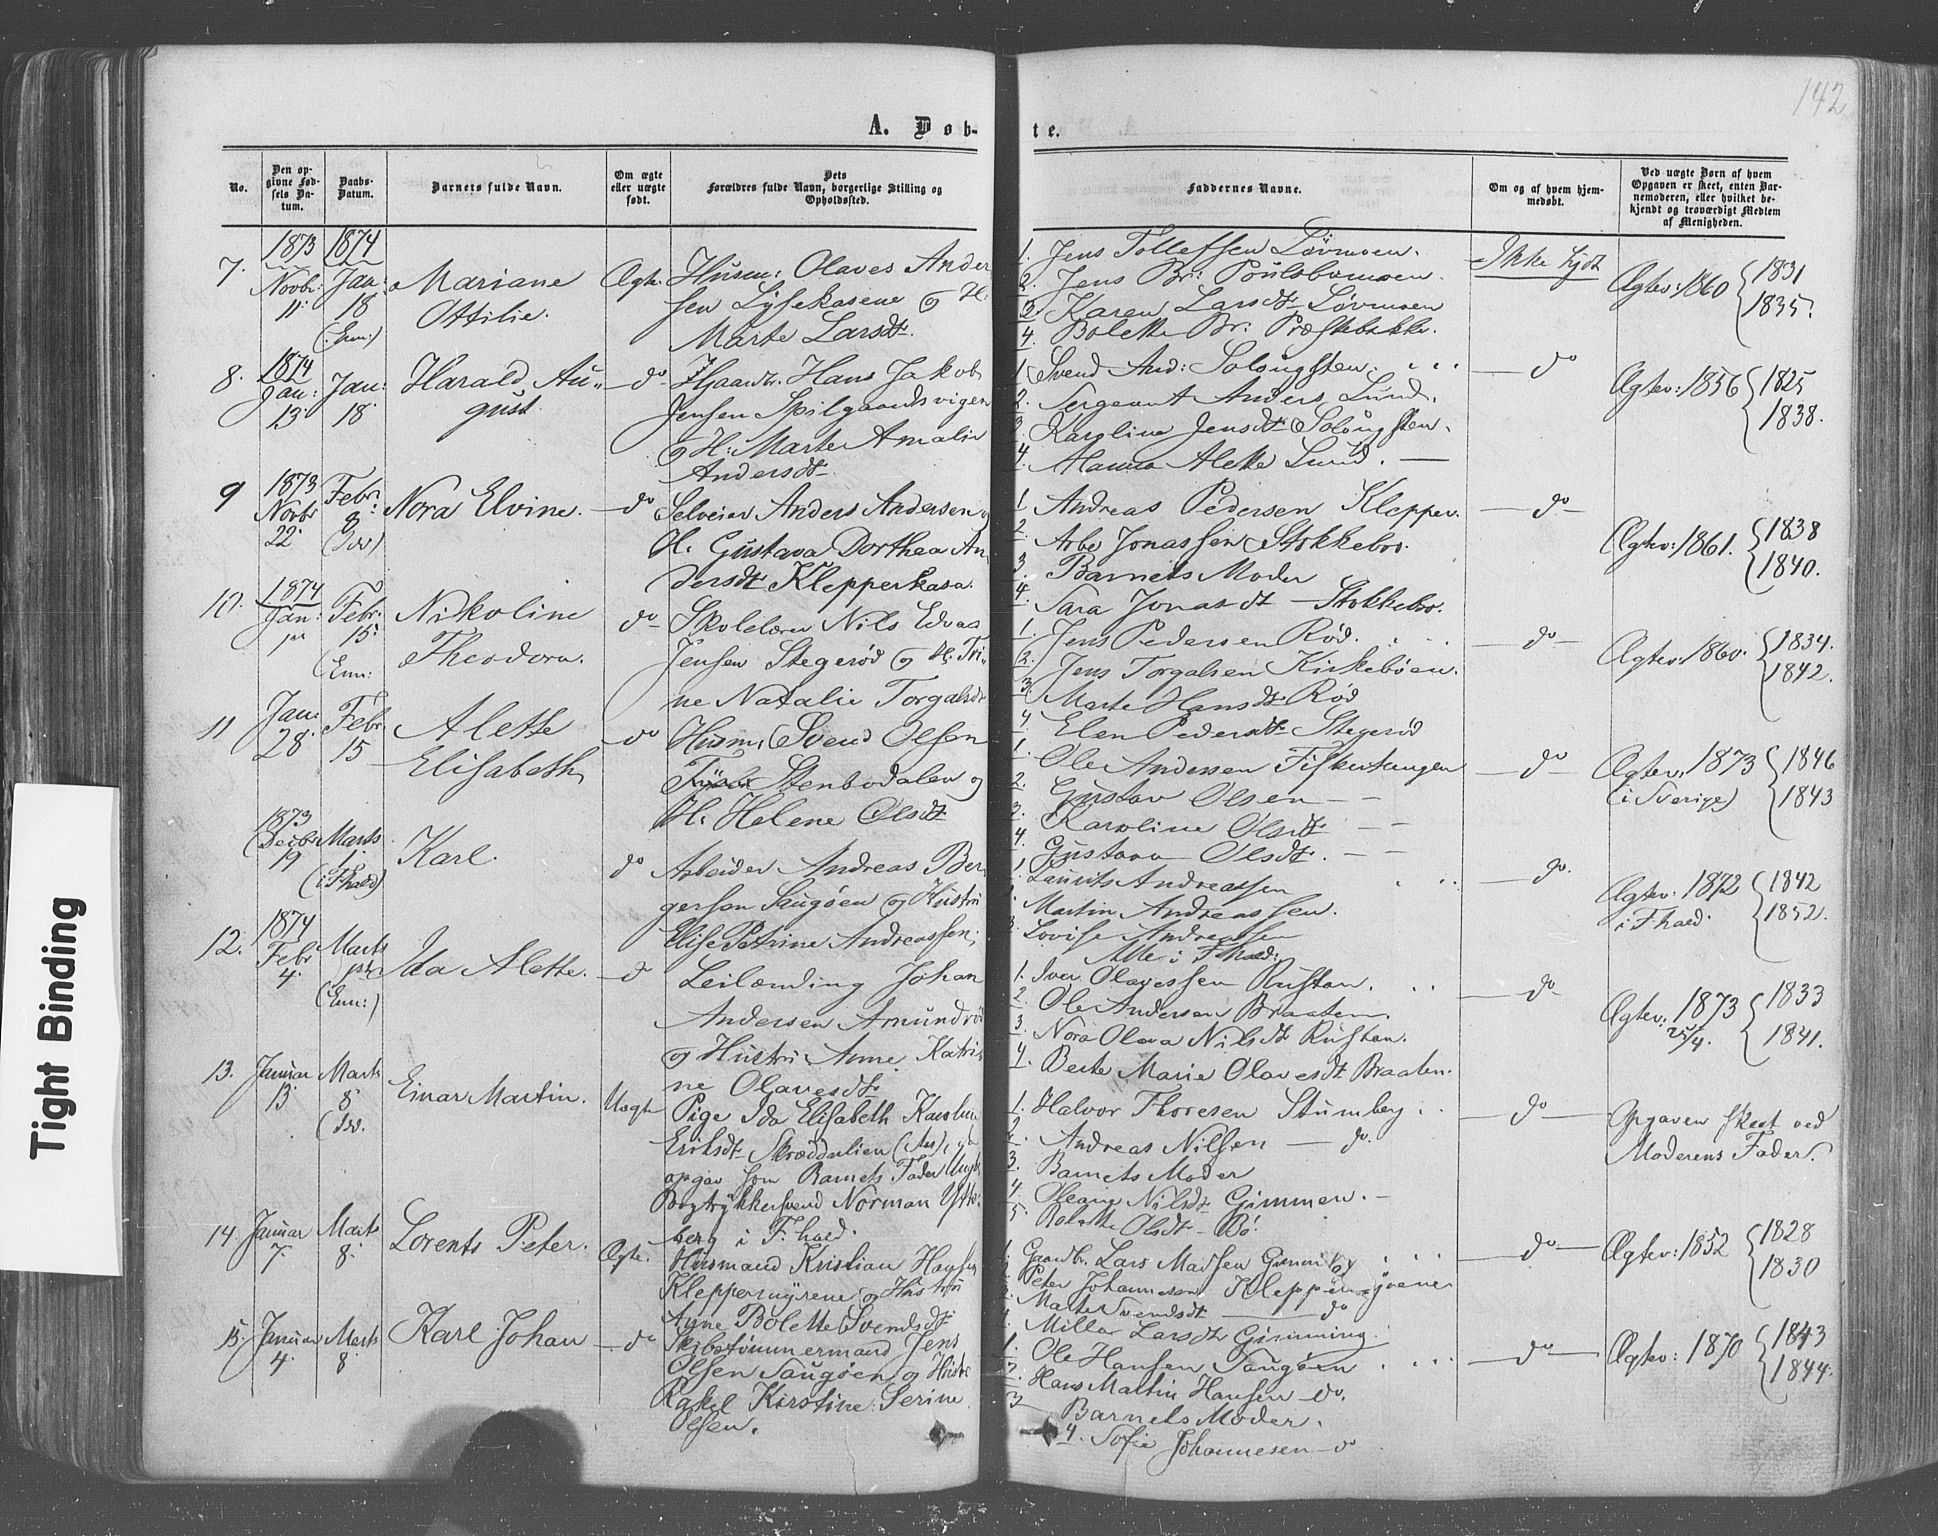 142
A. Døb-
te.
No.
Den op-
givne Fød-
sels Da-
tum.
Daabs-
Datum.
Barnets fulde Navn.
Om ægte
eller uægte
født.
Dets
Forældres fulde Navn, borgerlige Stilling og
Opholdssted.
Faddernes Navne.
Om og af hvem hjem-
medøbt.
Ved uægte Børn af hvem
Opgaven er skeet, enten Bar-
nemoderen, eller hvilket be-
kjendt og troværdigt Medlem
af Menigheden.
7.
1873
Novbr:
11.
1874
Jan:
18
(Enn:)
Mariane
Ottilie.
Ægte.
Husm: Olaves Ander
sen Lysekasene og H:
Marte Larsdt.
1. Jens Tollefsen Løvmoen.
2. Jens Br: Poulsbomoen.
3. Karen Larsdt Løvmoen
4. Bolette Br: Præstebakke.
Ikke hjdt
Ægtev: 1860 { 1831
1835.
8.
1874
Jan:
13
Jan:
18.
Harald Au-
gust.
do
Gaardbr. Hans Jakob
Jensen Spilgaardsvigen
og H: Marte Amalie
Andersdt.
1. Svend And: Solougsten.
2. Sergeant Anders Lund.
3. Karoline Jensdt Solougsten.
4. Hanna Alette Lund.
do
Ægtev: 1856 { 1825
1838.
9
1873
Novbr
22.
Febr:
8
(Idd)
Nora Elvine.
do
Selveier Anders Andersen
H. Gustava Dorthea An
dersdt Klepperkasa.
1. Andreas Pedersen Klepper.
2. Arbe Jonassen Stokkebro.
3. Barnets Moder
4. Sara Jonasdt Stokkebro.
do
Ægtev: 1861. { 1838
1840.
10.
1874
Jan:
Febr:
15.
(Enn:)
Nikoline
Theodora.
do
Skolelærer Nils Edvas
Jensen Stegerød og H: Tri-
ne Natalie Torgalsdt
1. Jens Pedersen Rød.
2. Jens Torgalsen Kirkebøen.
3. Marte Hansdt Rød
4 Elen Pedersdt Stegerød
do
Ægtev: 1860. { 1834.
1842.
11
Jan:
28.
Febr
15
Alette
Elisabeth
do
Husm: Svend Olsen
Stenbodalen og
H. Helene Olsdt
1. Ole Andersen Fiskertangen
2. Gustav Olsen
3. Karoline Olsdt
4. Gustava Olsdt.
do
Ægtev. 1873 { 1846
(i Sverige) 1843
1873
Decbr
19
Marts
1.
(i Fhald)
Karl.
do
Arbeider Andreas Ber
gersen Saugøen og Hustru
Elise Petrine Andreassen;
1. Laurits Andreassen
Martin Andreassen.
3. Lovise Andreassen
Alle i Fhald:
do.
Ægtev. 1872 { 1842
i Fhald. 1852.
12.
1874
Febr
4.
Marts
(Enn:)
Ida Alette.
do
Leilænding Johan
Andersen Amundrød
og Hustru Anne Katri
ne Olavesdt
1. Iver Olavessen Rusten.
2. Ole Andersen Braaten.
3. Nora Olava Nilsdt Rusten.
4. Berte Marie Olavesdt Braaten.
do
Ægtev: 1873 { 1833
25/4. 1841.
13.
Januar
13
Marts
8
(Idd.
Einar Martin.
Uægte
Pige Ida Elisabeth Karoline
Eriksdt Skrædderlien (Aas),
opgav som Barnets Fader Ungk
Bogtrykkersvend Norman Ytte-
berg i Fhald.
1. Halvor Thoresen Stumberg
2. Andreas Nilsen do.
3. Barnets Moder
4. Oleane Nilsdt Gimmen.
5. Bolette Olsdt Bø.
do
Opgaven skeet ved
Moderens Fader.
14.
Januar
7.
Marts
8.
Lorents Peter.
Ægte.
Husmand Kristian Hansen
Kleppermyrene og Hustru
Anne Bolette Svendsdt
1. Gaardbr. Lars Madsen Gimming
2. Peter Johannesen Kleppermyrene
Marte Svendsdt do
4. Millar Larsdt Gimming.
do
Ægtev: 1852 { 1828
1830
15.
Januar
4.
Marts
8
Karl Johan
do
Skibstømmermand Jens
Olsen Saugøen og Hustr
Rakel Kirstine Serine
Olsen.
1. Ole Hansen Saugøen
2. Hans Martin Hansen do.
3 Barnets Moder.
4. Sofie Johannesen do
do
Ægtev: 1870 { 1843
1844.
Tight Binding